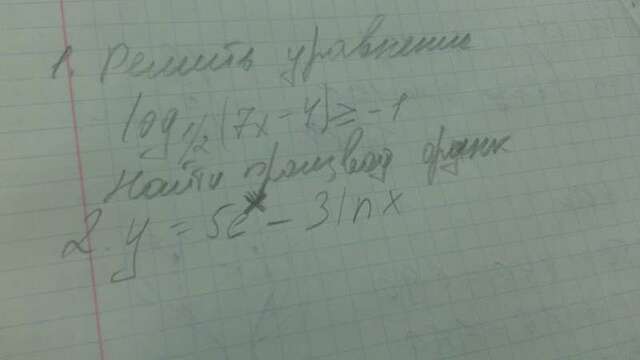 1. Решить уравнение
log 1/2 (7x - 4) ≥ -1
Найти производ функ
2. y = 5e^x - 3 ln x